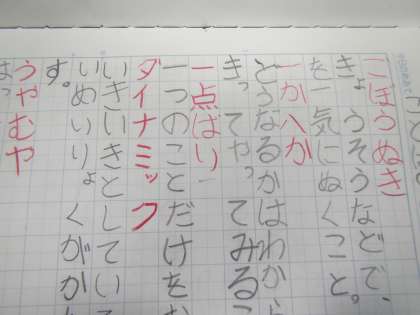 ごぼうぬき
きょうそうなどで、
を一気にぬくこと。
一か八か
どうなるかはわから
きってやってみる
一点ばり
一つのことだけを
ダイナミック
いきいきとしてい
いめいりょくがか
す。
うやむや
はっ